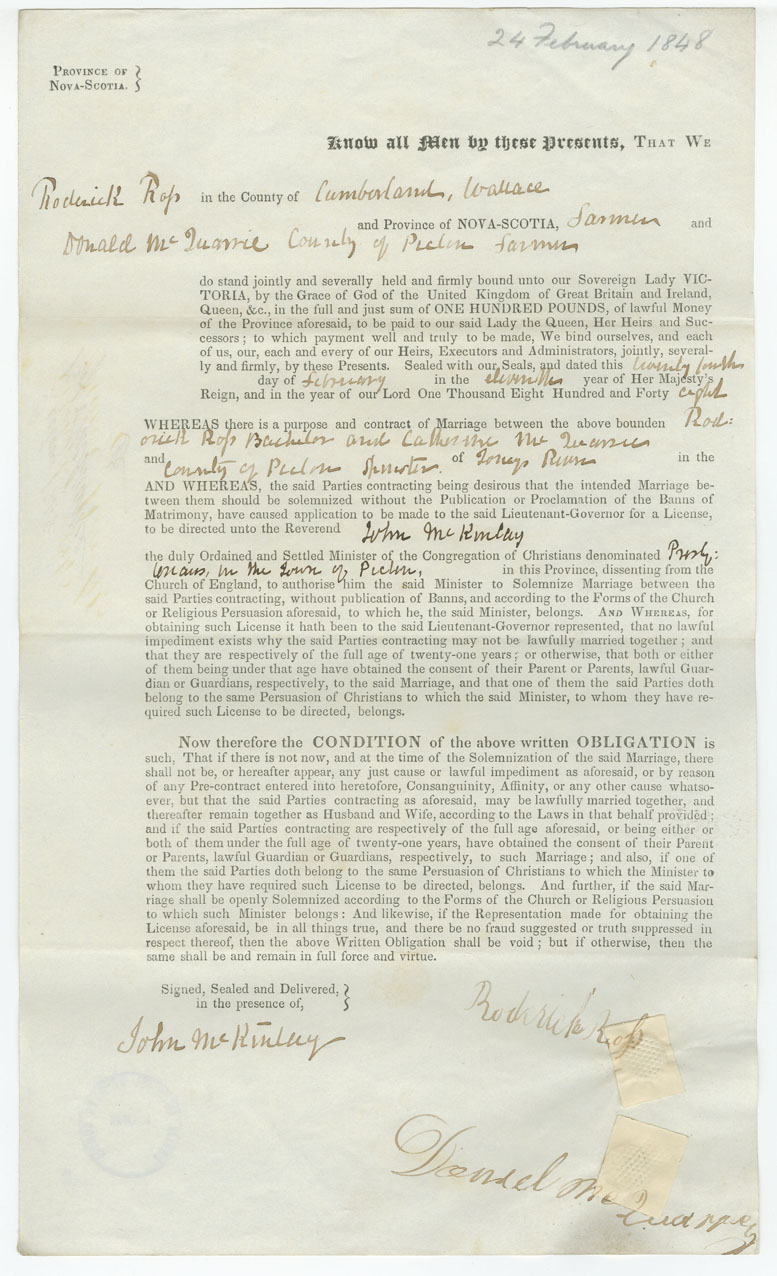 24 February 1848
PROVINCE OF
NOVA-SCOTIA.
Know all Men by these Presents, THAT WE
Roderick Ross in the County of Cumberland, Wallace
and Province of NOVA-SCOTIA, Farmer and
Donald McQuarrie County of Pictou Farmer
do stand jointly and severally held and firmly bound unto our Sovereign Lady VIC-
TORIA, by the Grace of God of the United Kingdom of Great Britain and Ireland,
Queen, &c., in the full and just sum of ONE HUNDRED POUNDS, of lawful Money
of the Province aforesaid, to be paid to our said Lady the Queen, Her Heirs and Suc-
cessors; to which payment well and truly to be made, We bind ourselves, and each
of us, our, each and every of our Heirs, Executors and Administrators, jointly, several-
ly and firmly, by these Presents. Sealed with our Seals, and dated this twenty fourth
day of February in the eleventh year of Her Majesty's
Reign, and in the year of our Lord One Thousand Eight Hundred and Forty eight
WHEREAS there is a purpose and contract of Marriage between the above bounden Rod:
erick Ross Bachelor and Catherine McQuarrie
and County of Pictou Spinster. of Toneys River in the
AND WHEREAS, the said Parties contracting being desirous that the intended Marriage be-
tween them should be solemnized without the Publication or Proclamation of the Banns of
Matrimony, have caused application to be made to the said Lieutenant-Governor for a License,
to be directed unto the Reverend John McKinlay
the duly Ordained and Settled Minister of the Congregation of Christians denominated Presby:
terians, in the Town of Pictou, in this Province, dissenting from the
Church of England, to authorise him the said Minister to Solemnize Marriage between the
said Parties contracting, without publication of Banns, and according to the Forms of the Church
or Religious Persuasion aforesaid, to which he, the said Minister, belongs. AND WHEREAS, for
obtaining such License it hath been to the said Lieutenant-Governor represented, that no lawful
impediment exists why the said Parties contracting may not be lawfully married together; and
that they are respectively of the full age of twenty-one years; or otherwise, that both or either
of them being under that age have obtained the consent of their Parent or Parents, lawful Guar-
dian or Guardians, respectively, to the said Marriage, and that one of them the said Parties doth
belong to the same Persuasion of Christians to which the said Minister, to whom they have re-
quired such License to be directed, belongs.
Now therefore the CONDITION of the above written OBLIGATION is
such, That if there is not now, and at the time of the Solemnization of the said Marriage, there
shall not be, or hereafter appear, any just cause or lawful impediment as aforesaid, or by reason
of any Pre-contract entered into heretofore, Consanguinity, Affinity, or any other cause whatso-
ever, but that the said Parties contracting as aforesaid, may be lawfully married together, and
thereafter remain together as Husband and Wife, according to the Laws in that behalf provided;
and if the said Parties contracting are respectively of the full age aforesaid, or being either or
both of them under the full age of twenty-one years, have obtained the consent of their Parent
or Parents, lawful Guardian or Guardians, respectively, to such Marriage; and also, if one of
them the said Parties doth belong to the same Persuasion of Christians to which the Minister to
whom they have required such License to be directed, belongs. And further, if the said Mar-
riage shall be openly Solemnized according to the Forms of the Church or Religious Persuasion
to which such Minister belongs: And likewise, if the Representation made for obtaining the
License aforesaid, be in all things true, and there be no fraud suggested or truth suppressed in
respect thereof, then the above Written Obligation shall be void; but if otherwise, then the
same shall be and remain in full force and virtue.
Signed, Sealed and Delivered,
in the presence of,
John McKinlay
Roderick Ross
Daniel Mc